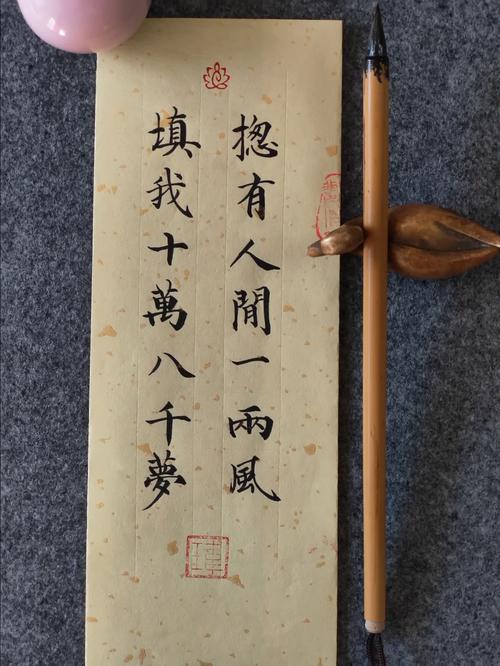 揔有人閒一兩風
填我十萬八千夢